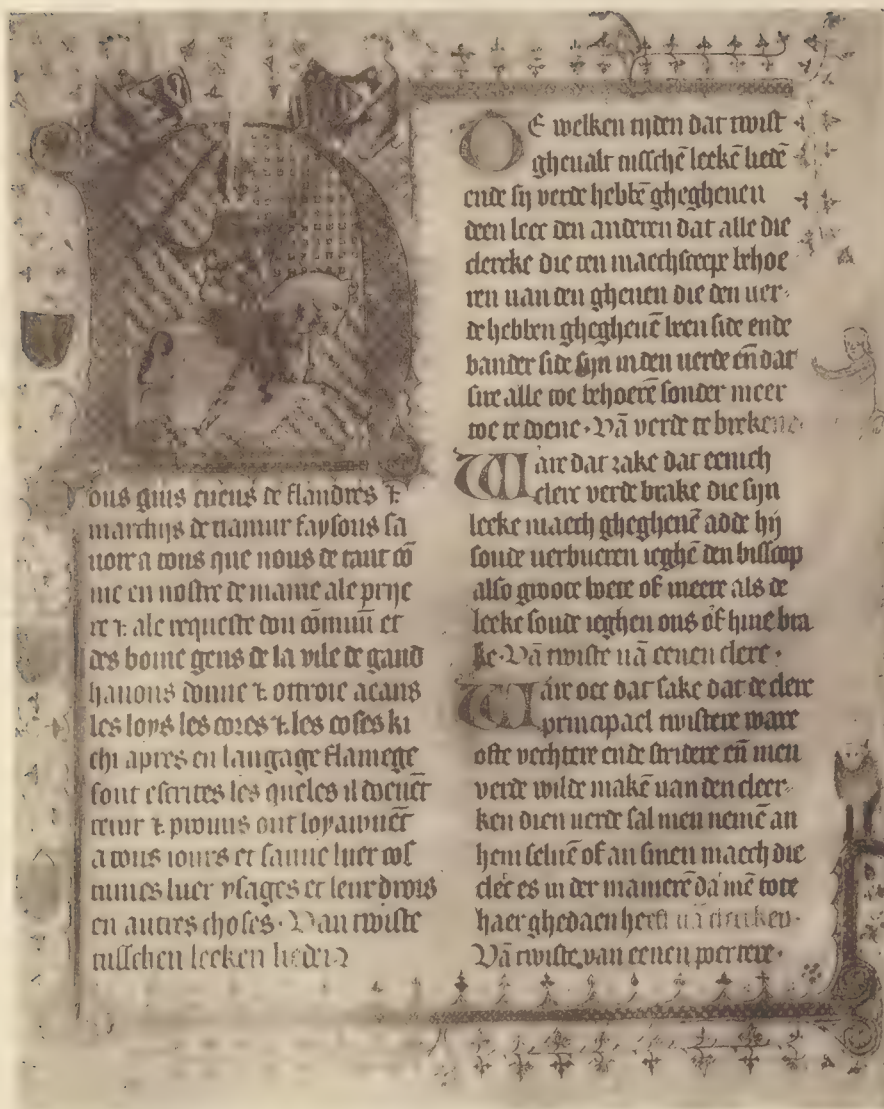 ous guis cuens de flandres ⁊
marchijs de namur faysons sa
uoir a tous que nous de tant cō
me en nostre demaine ale prije
re ⁊ ale requeste dou cōmun et
des boine gens de la vile de gand
hauons donne ⁊ ottroie a cans
les loys les cores ⁊ les coses ki
chi apres en langage flamege
sont escrites les queles il doeuēt
tenir ⁊ promis ont loyaumēt
a tous iours et sauue luer cos
tumes luer vsages et leur drois
en autres choses · Van twiste
tusschen leeken lieden
OE welken tijden dat twist
gheualt tusschē leekē liedē
ende sij verde hebbē ghegheuen
deen leec den anderen dat alle die
clercke die ten maechscepe behoe
ren uan den ghenen die den uer-
de hebben ghegheuē been side ende
bander side sijn in den uerde eñ dat
sire alle toe behoerē sonder meer
toe te doene · Vā verde te brekene
Waire dat zake dat eenich
clerc verde brake die sijn
leeke maech ghegheuē adde hij
soude uerbueren ieghē den bisscop
also groote boete of meere als de
leeke soude ieghen ons of hine bra
ke · Vā twiste uā eenen clerc ·
Wair oec dat sake dat de clerc
principael twistere ware
ofte vechtere ende stridere eñ men
verde wilde makē uan den cleer-
ken dien uerde sal men nemē an
hem seluē of an sinen maech die
clerc es in der manierē da mē tote
haer ghedaen heeft uā clerken ·
Vā twiste van eenen poertere ·